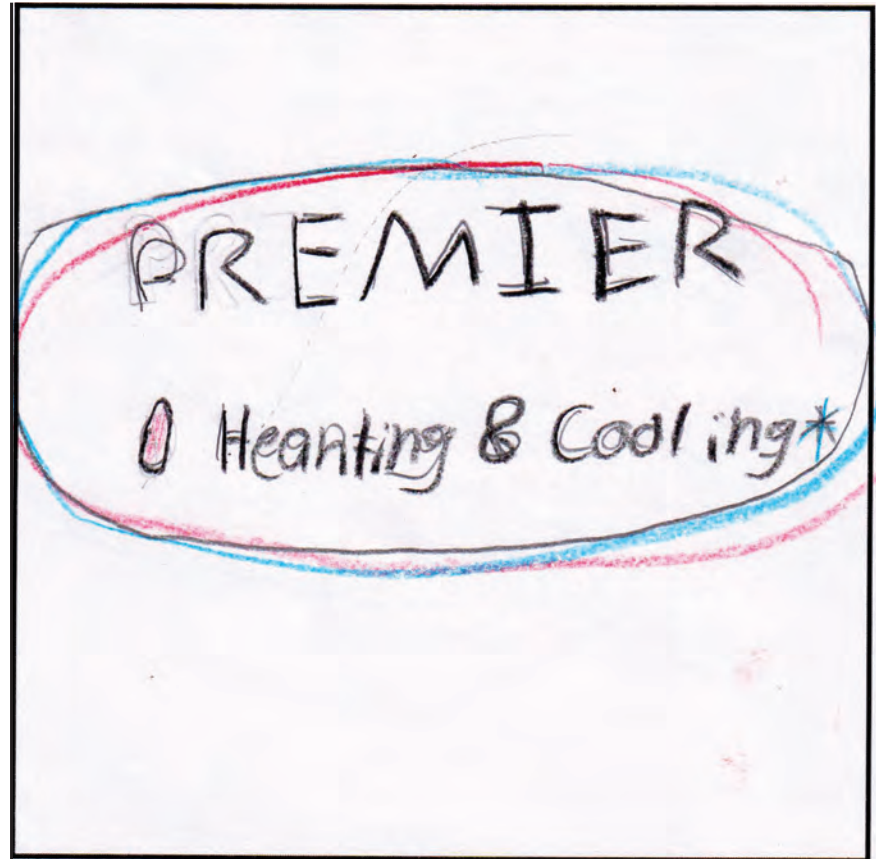 PREMIER
Heanting & Cooling